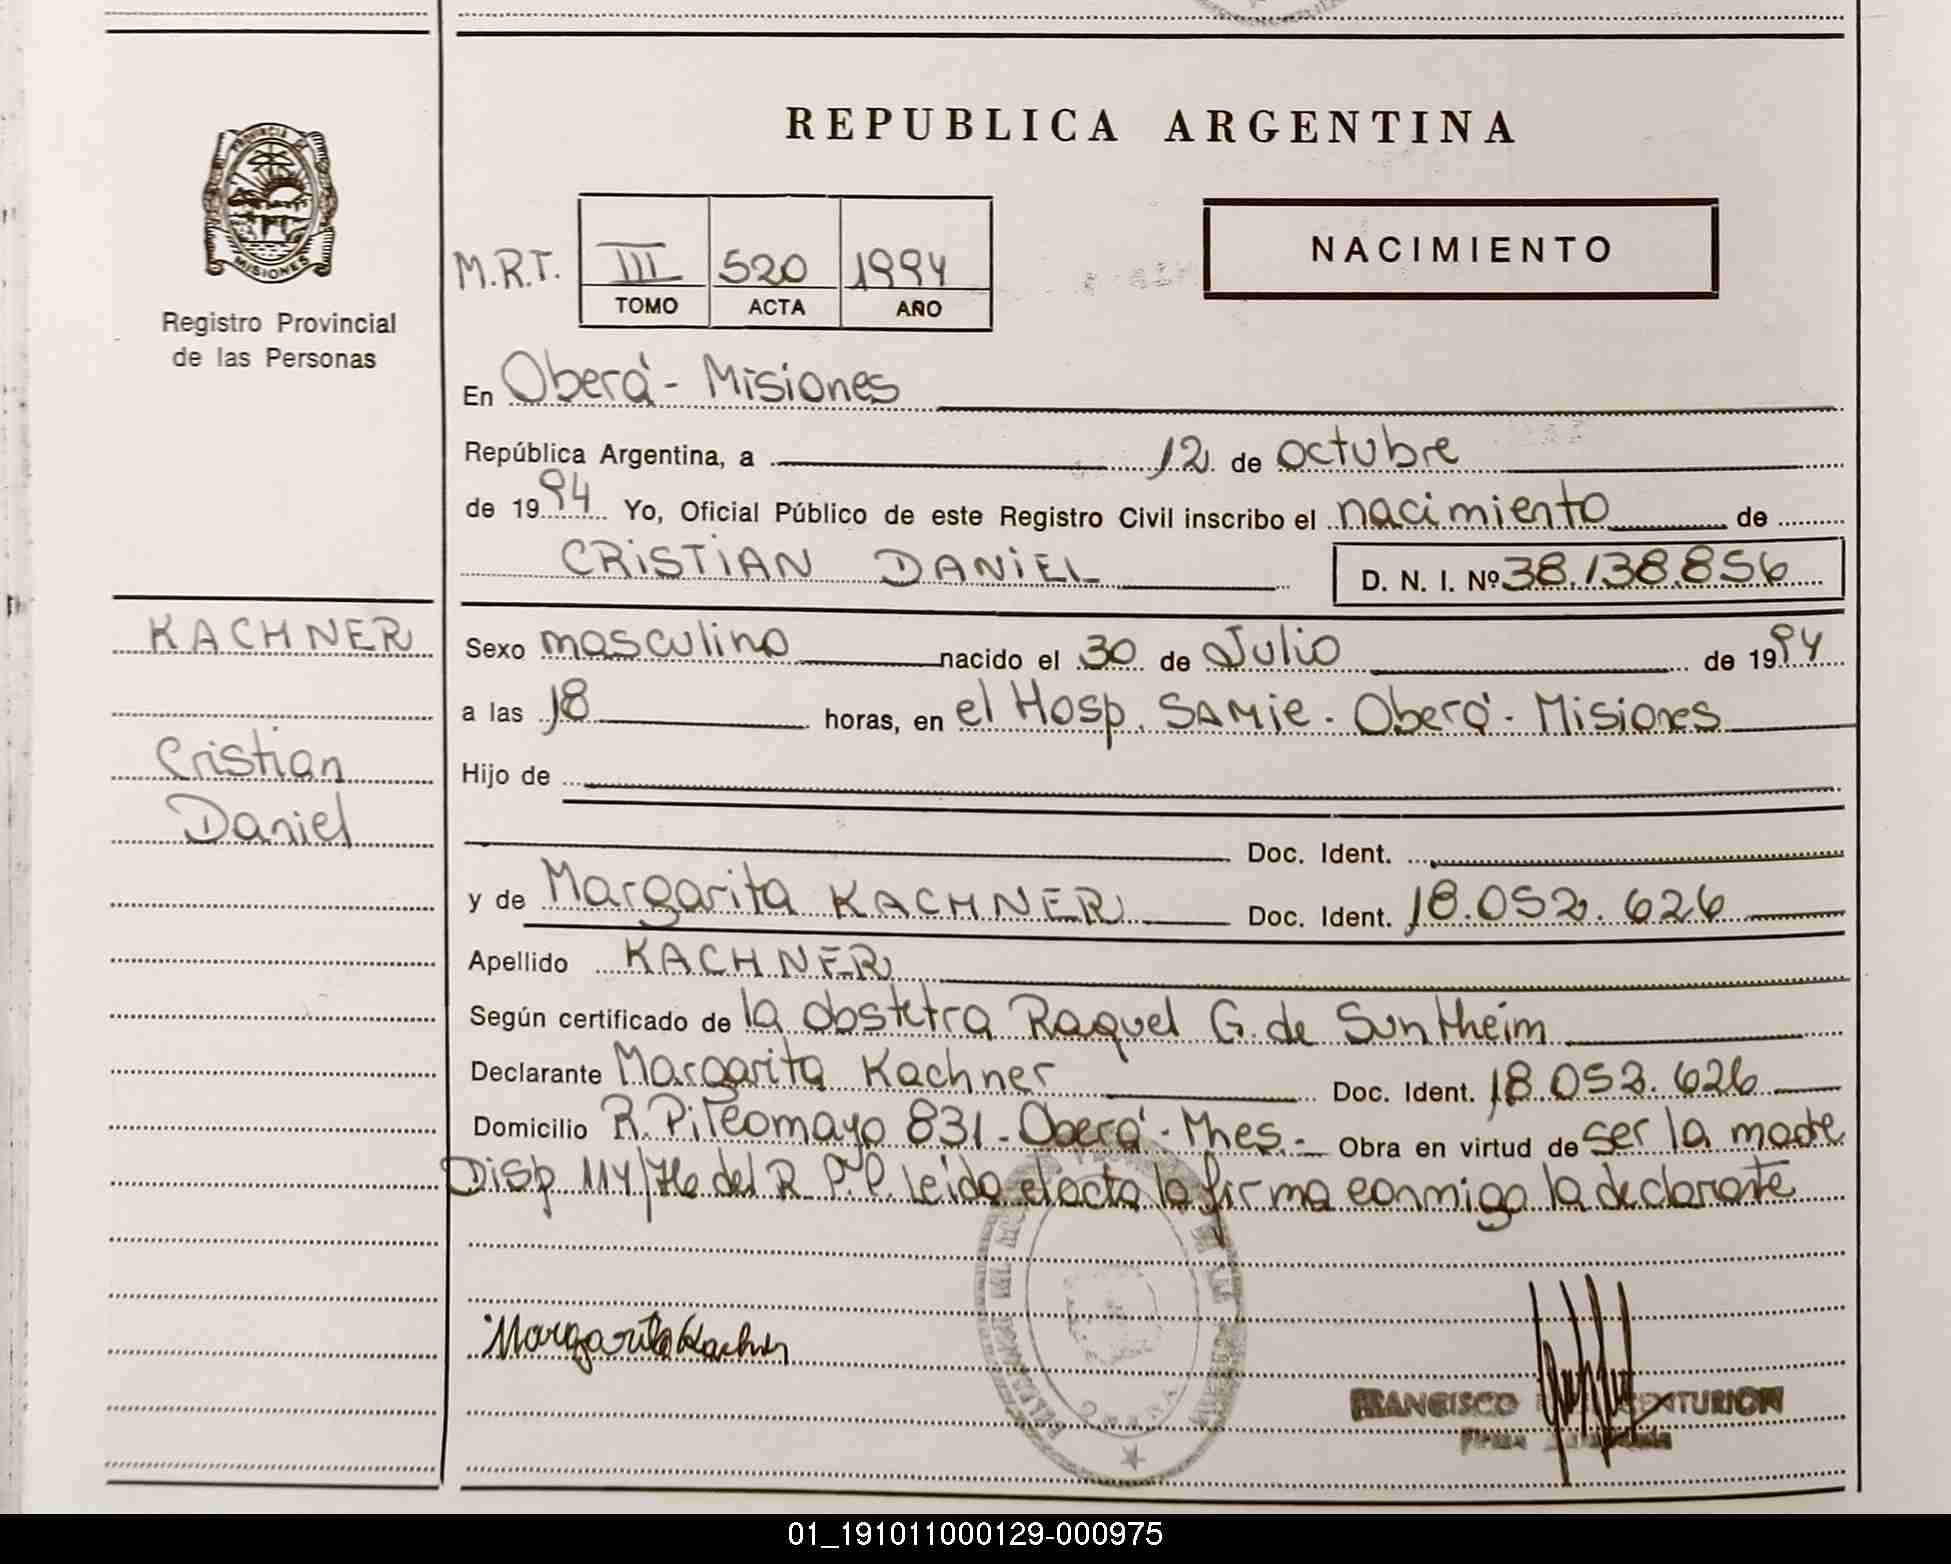 REPUBLICA ARGENTINA
PROVINCIA DE
MISIONES
Registro Provincial
de las Personas
M.R.T. III 520 1994
TOMO ACTA AÑO
NACIMIENTO
En Oberá - Misiones
República Argentina, a 12 de octubre
de 1994 Yo, Oficial Público de este Registro Civil inscribo el nacimiento de
CRISTIAN DANIEL D. N. I. Nº 38.138.856
KACHNER
Cristian
Daniel
Sexo masculino nacido el 30 de Julio de 1994
a las 18 horas, en el Hosp. SAMIC - Oberá - Misiones
Hijo de
Doc. Ident.
y de Margarita KACHNER Doc. Ident. 18.052.626
Apellido KACHNER
Según certificado de la obstetra Raquel G. de Suntheim
Declarante Margarita Kachner Doc. Ident. 18.052.626
Domicilio R. Pilcomayo 831 - Oberá - Mnes. - Obra en virtud de ser la madre
Disp. 114/76 del R.P.P. Leida el acta la firma conmigo la declarante
Margarita Kachner
FRANCISCO CENTURION
01_191011000129-000975